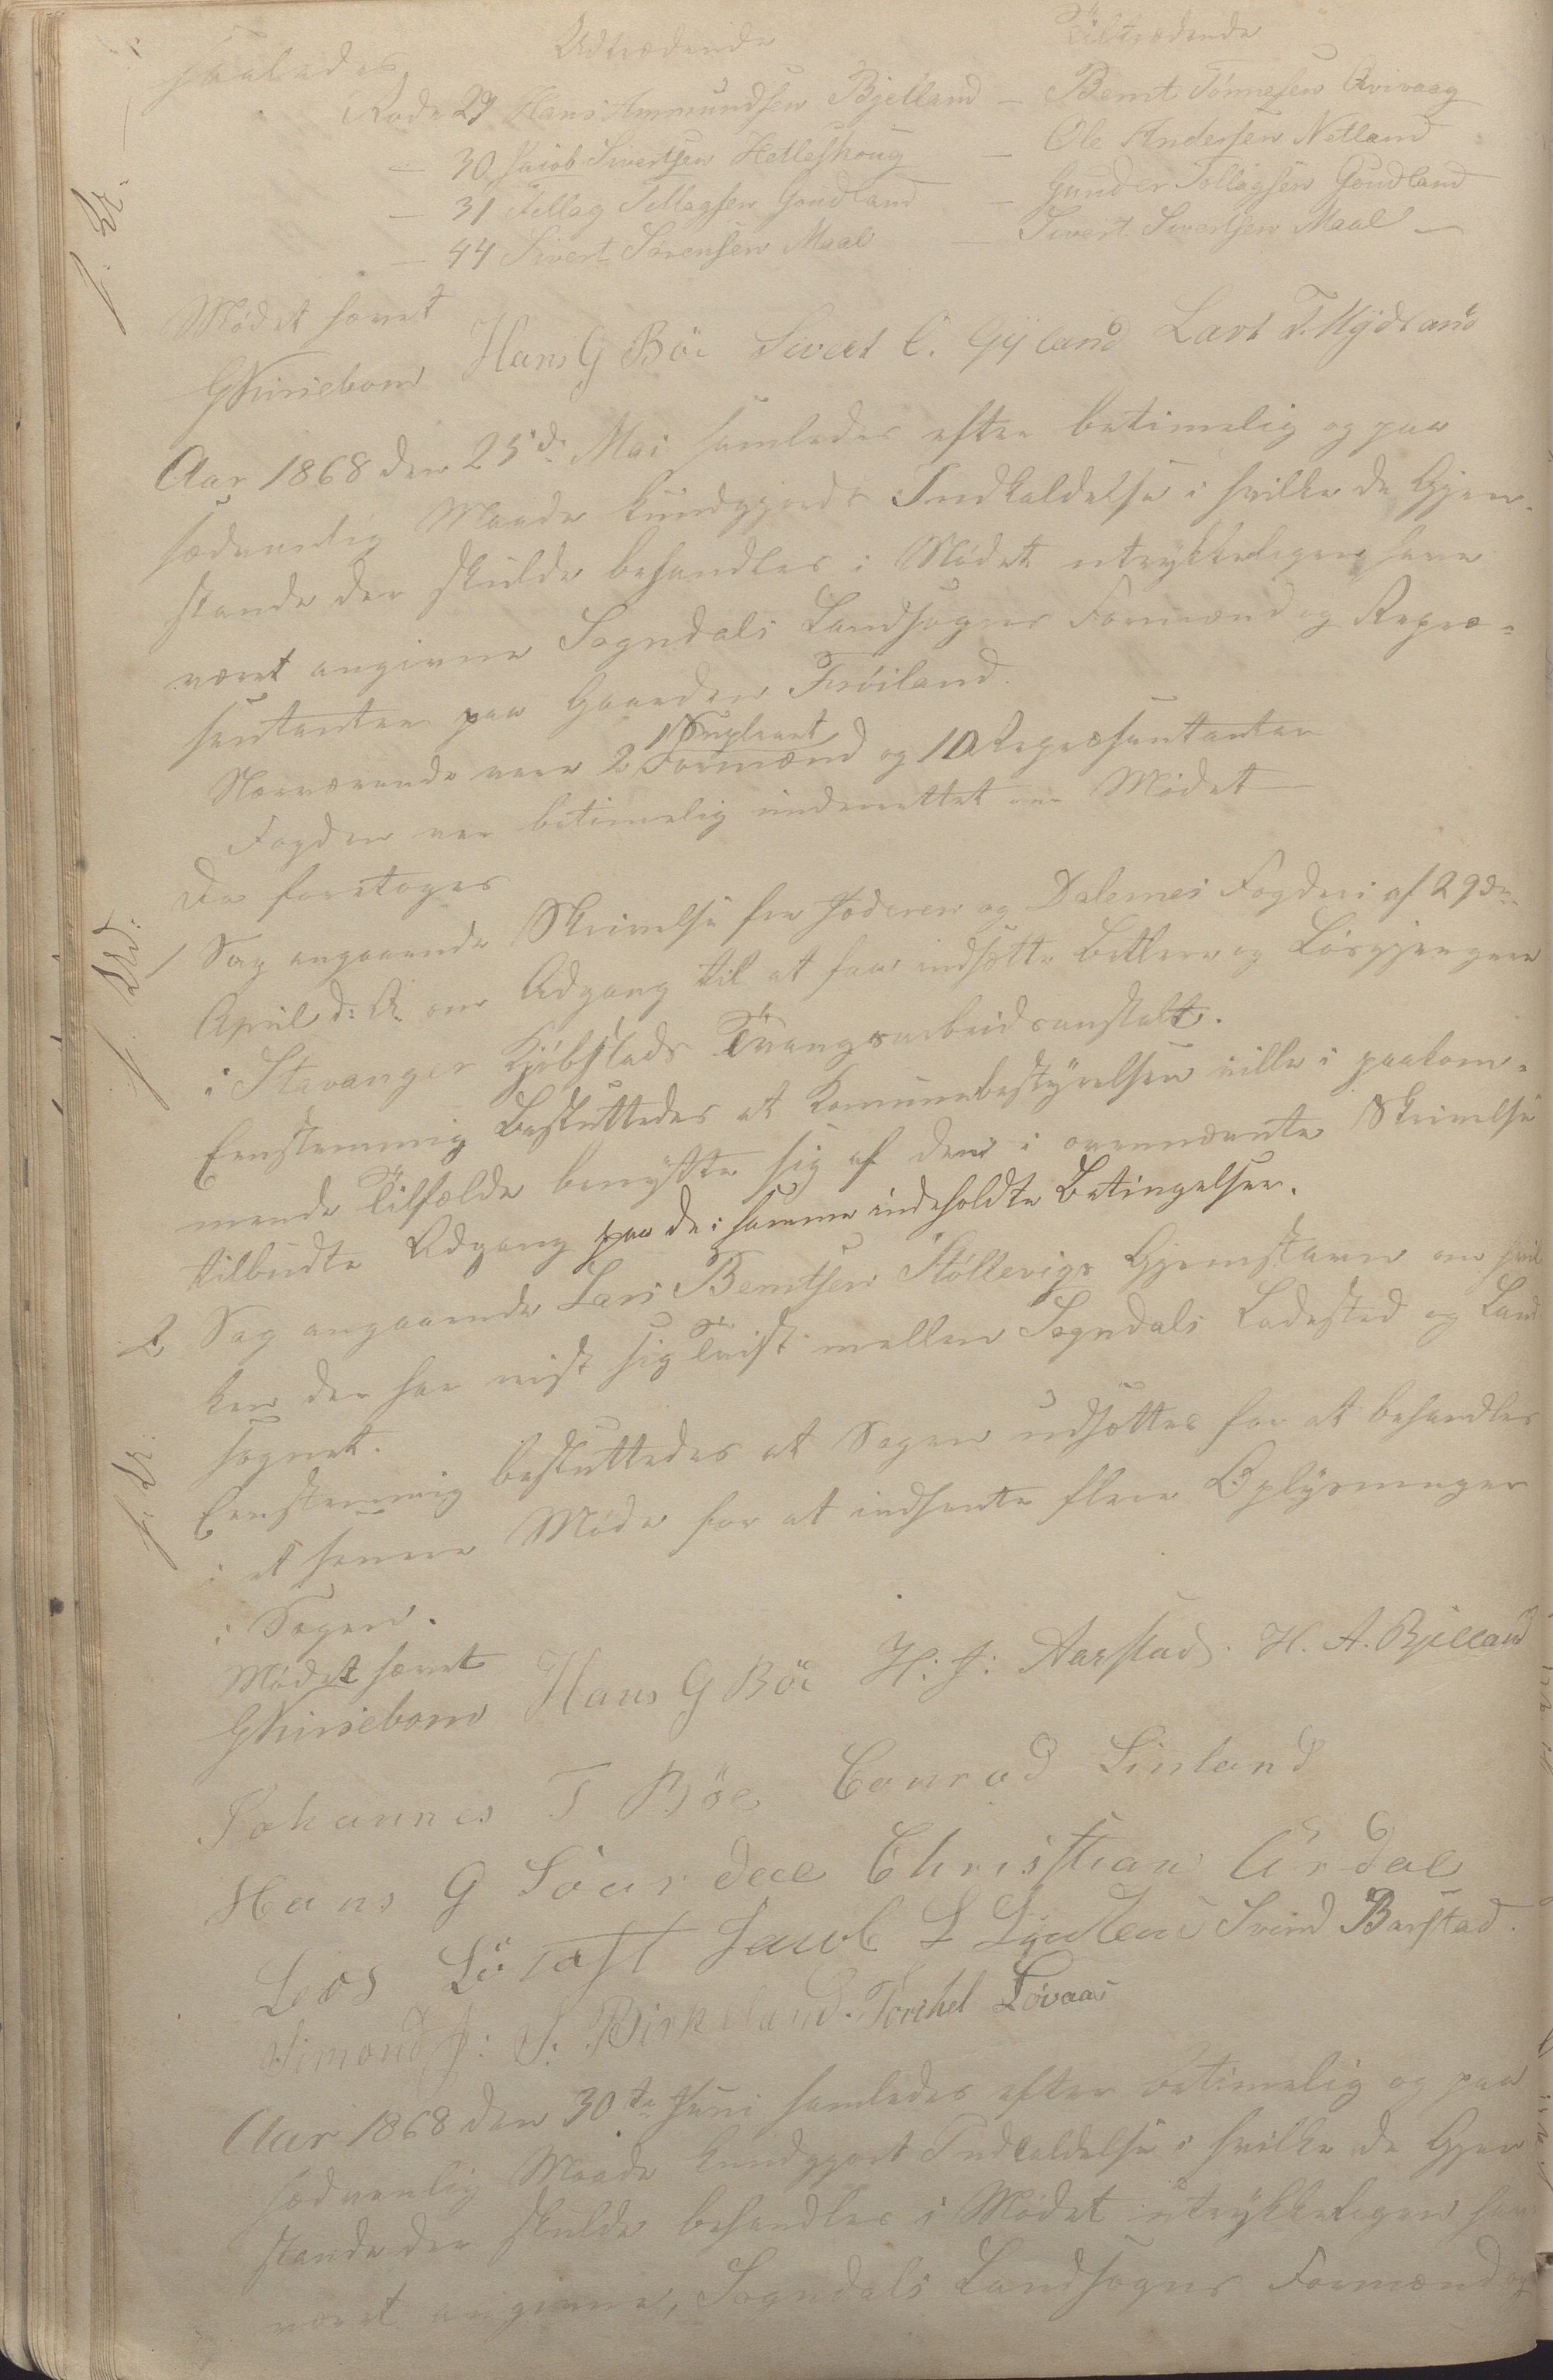 saaledes
Udtrædende Tiltrædende
Rode 29 Hans Ammundsen Bjelland – Bernt Tönnesen Qvivaag
– 30 Jacob Sivertsen Hetleskoug – Ole Andersen Netland
– 31 Tollag Tollagsen Goudland – Gunder Tollagsen Goudland
– 44 Sivert Sørensen Maal – Sivert Sivertsen Maal –
Mödet hævet
Hans G Böe Sivert C. Gyland Lars T. Mydland
GKirsebom
Aar 1868 den 25de Mai samledes efter betimelig og paa
sædvanlig Maade kundgjords Indkaldelse i hvilke de Gjen-
stande der skulde behandles i Mödet utrykkeligen have
været angivne Sogndals Landsogns Formænd og Repræ-
sentanter paa Gaarden Fröiland.
1 Supleant
Nærværende vare 2 Formænd og 10 Repræsentanter
Fogden var betimelig underrettet om Mödet –
Da foretoges
1 Sag angaaende Skrivelse fra Jæderen og Dalernes Fogderi af 29de
April d: A. om Adgang til at faa indsætte Betlere og Lösgjengere
i Stavanger Kjöbstads Tvangsarbeidsanstalt.
Eenstemmig Besluttedes at Komunebestyrelsen ville i paakom-
mende Tilfælde benytte sig af den i ovennævnte Skrivelse
tilbudte Adgang paa de i samme indeholdte Betingelser.
2 Sag angaaende Lars Berntsen Stöllevigs Gjemstavn om hvil
ken der har reist sig Tvist mellem Sogndals Ladested og Land
sognet.
Eenstemmig besluttedes at Sagen udsættes for at behandles
i et senere Möde for at indhente flere Oplysninger
i Sagen.
Mödet hævet
GKirsebom Hans G Böe H: J: Aarstad. H. A. Bjelland
Johannes T Böe Conrad Linland
Hans G Söurdal Christian Årdal
Jacob L Svend Barstad.
Simond J: S. Birkeland. Torkel Lövaas
Aar 1868 den 30te Juni samledes efter betimelig og paa
sædvanlig Maade kundgjort Indkaldelse i hvilke de Gjen
stande der skulde behandles i Mödet utrykkeligen have
været angivne, Sogndals Landsogns Formænd og